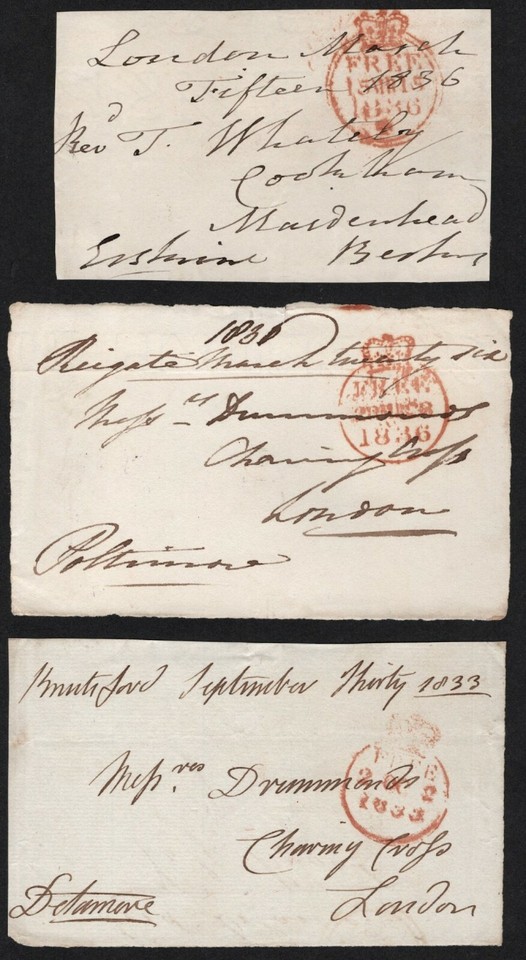 London March
Fifteen 1836
Revd T. Whately
Cookham
Maidenhead
Erskine Berks
FREE
15 MR 15
1836
1836
Reigate March twenty six
Messrs Drummonds
Charing Cross
London
Poltimore
FREE
1836
Knutsford September Thirty 1833
Messres Drummonds
Charing Cross
London
Delamere
FREE
2 OC 2
1833